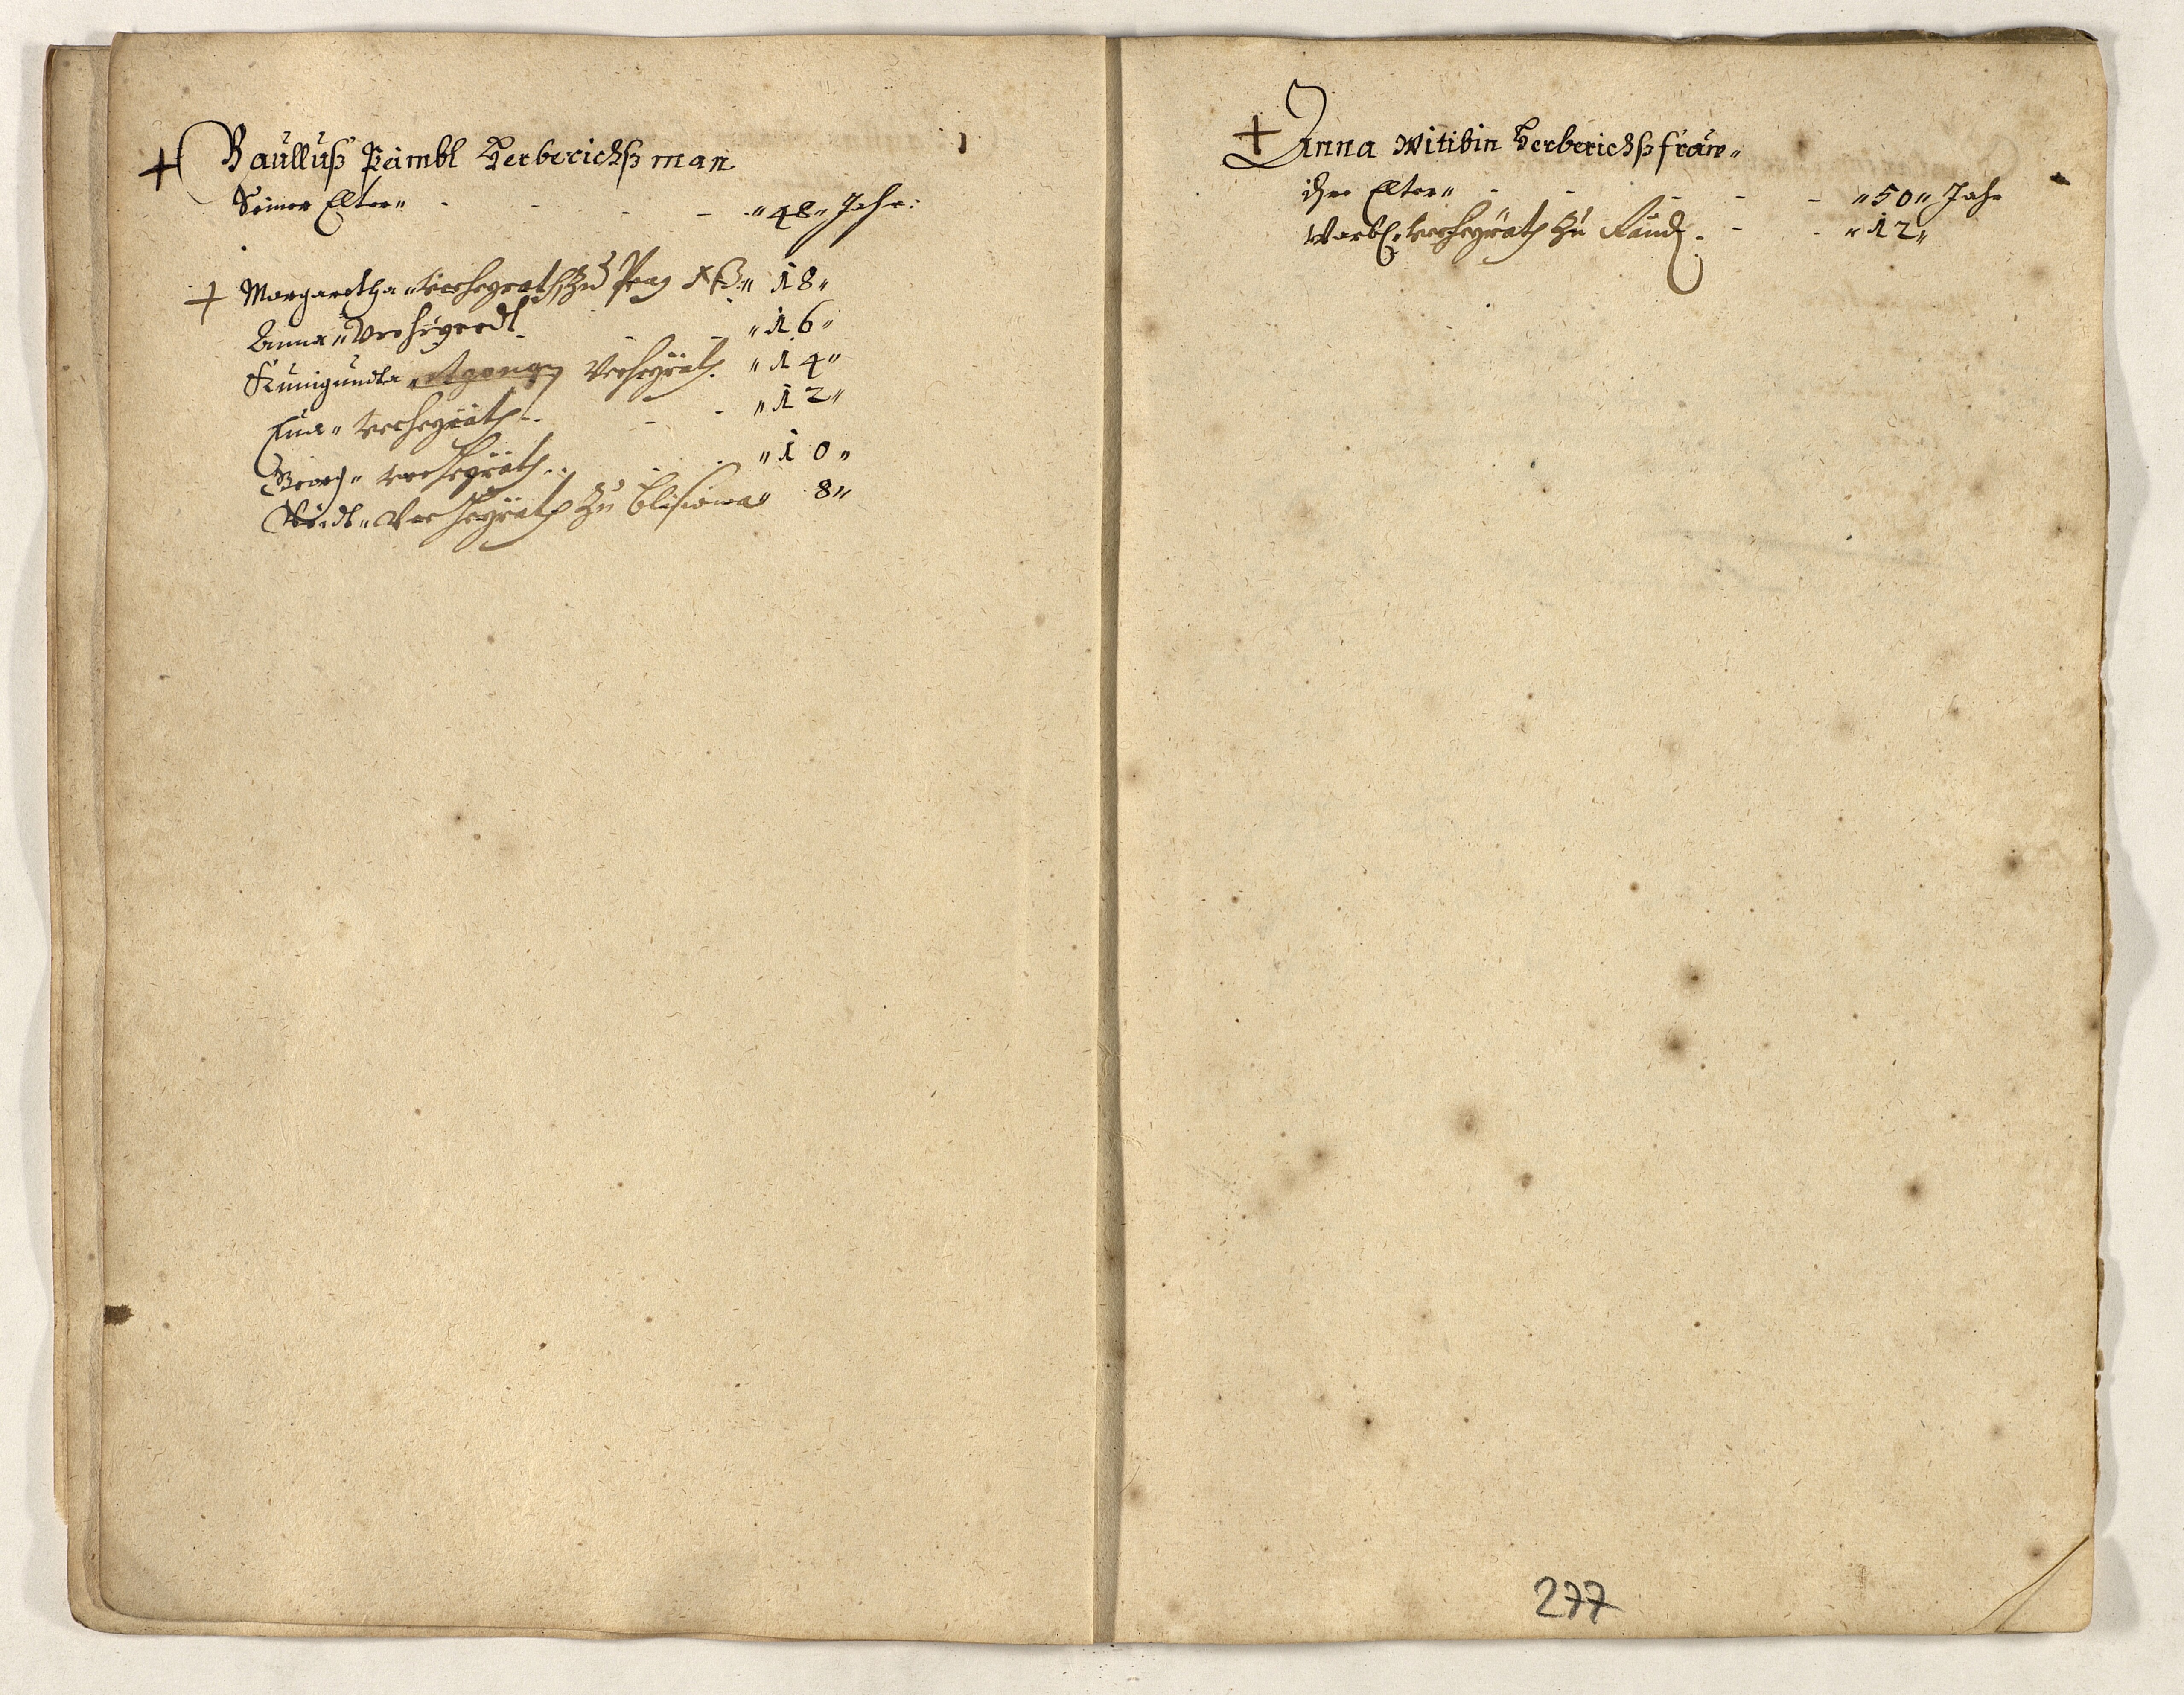 + Baulluß Peimbl Herberichßman
Seiner Elter „ - - - - „ 48 „ Jahr:
+ Margaretha „ verheyrath zu Prag „ 18 „
Anna „ Verheyradt - - „ 16 „
Kunigundta „ Verheyrath. „ 14 „
Eua „ verheyrath - - „ 12 „
Georg „ verheyrath - - „ 10 „
verheyrath zu „ 8 „
+ Anna Witibin Herberichßfraw „
ihre Elter „ - - - - „ 50 „ Jahr
Barbl „ verheyrath zu - - „ 12 „
277